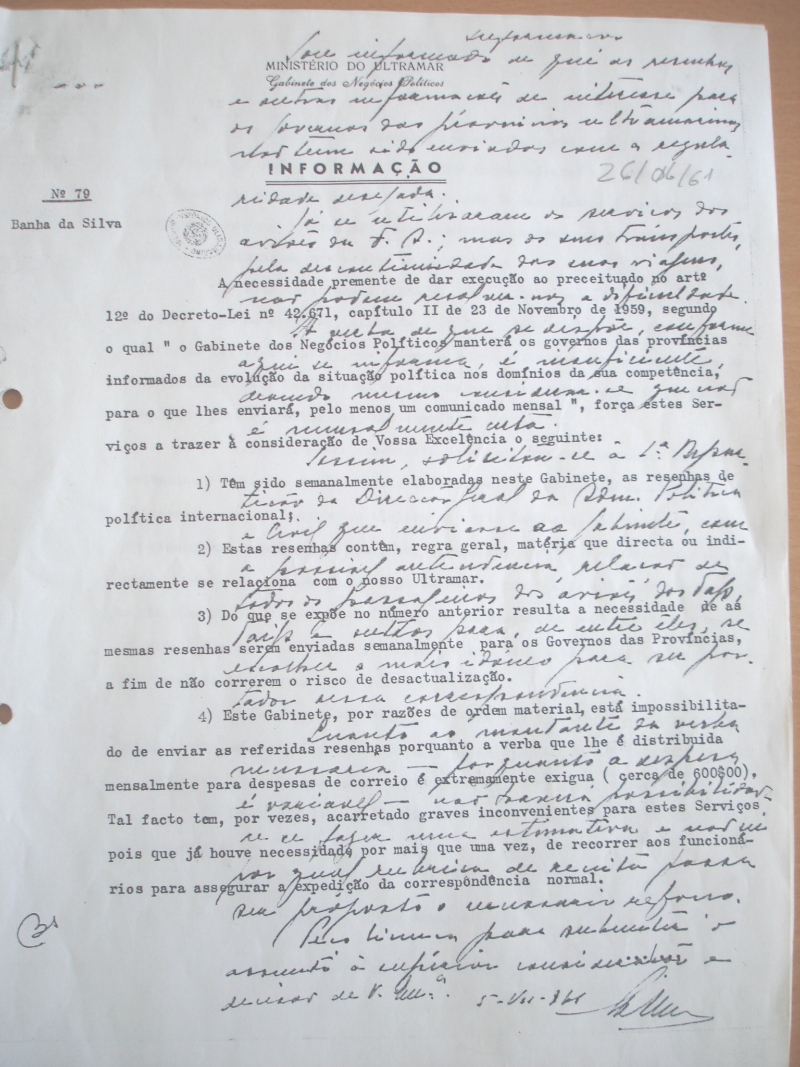 Sou informado de que as resenhas
MINISTÉRIO DO ULTRAMAR
Gabinete dos Negócios Políticos
e outras informações de interesse para
os governos das províncias ultramarinas
não têm sido enviadas com a regula-
INFORMAÇÃO
26/06/61
Nº 79
ridade desejada.
Banha da Silva
Já se utilizaram os serviços dos
aviões da F. A.; mas os seus transportes,
pela descontinuidade das suas viagens,
A necessidade premente de dar execução ao preceituado no artº
não podem resolver-nos a dificuldade.
12º do Decreto-Lei nº 42.671, capítulo II de 23 de Novembro de 1959, segundo
A verba de que se dispõe, conforme
o qual " o Gabinete dos Negócios Políticos manterá os governos das províncias
aqui se informa, é insuficiente,
informados da evolução da situação política nos domínios da sua competência,
devendo mesmo considerar-se que não
para o que lhes enviará, pelo menos um comunicado mensal ", força estes Ser-
é
viços a trazer à consideração de Vossa Excelência o seguinte:
Assim, solicitou-se à 1ª Repar-
1) Têm sido semanalmente elaboradas neste Gabinete, as resenhas de
tição da Direcção Geral da Adm. Política
política internacional;
e Civil que enviasse ao Gabinete, com
2) Estas resenhas contêm, regra geral, matéria que directa ou indi-
a possível antecedência, relação de
rectamente se relaciona com o nosso Ultramar.
todos os passageiros dos aviões dos
3) Do que se expõe no número anterior resulta a necessidade de as
e outros para, de entre eles, se
mesmas resenhas serem enviadas semanalmente para os Governos das Províncias,
escolher o mais idóneo para ser por-
a fim de não correrem o risco de desactualização.
tador dessa correspondência.
4) Este Gabinete, por razões de ordem material, está impossibilita-
Quanto ao montante da verba
do de enviar as referidas resenhas porquanto a verba que lhe é distribuida
necessária — porquanto a despesa
mensalmente para despesas de correio é extremamente exigua ( cerca de 600$00).
é variável — não haverá possibilidade
Tal facto tem, por vezes, acarretado graves inconvenientes para estes Serviços
de se fazer uma estimativa e não sei
pois que já houve necessidade por mais que uma vez, de recorrer aos funcioná-
por qual rubrica de receita possa
rios para assegurar a expedição da correspondência normal.
ser proposto o necessário reforço.
Peço licença para submeter o
assunto à superior consideração e
decisão de V. Exª.